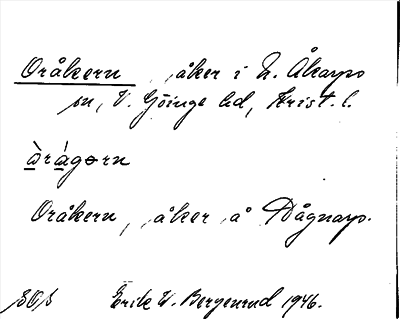 Oråkern, åker i N. Åkarps
sn, V. Göinge hd, Krist. l.
Oråkern, åker å Dågnarp.
Erik W. Bergenrud 1946.